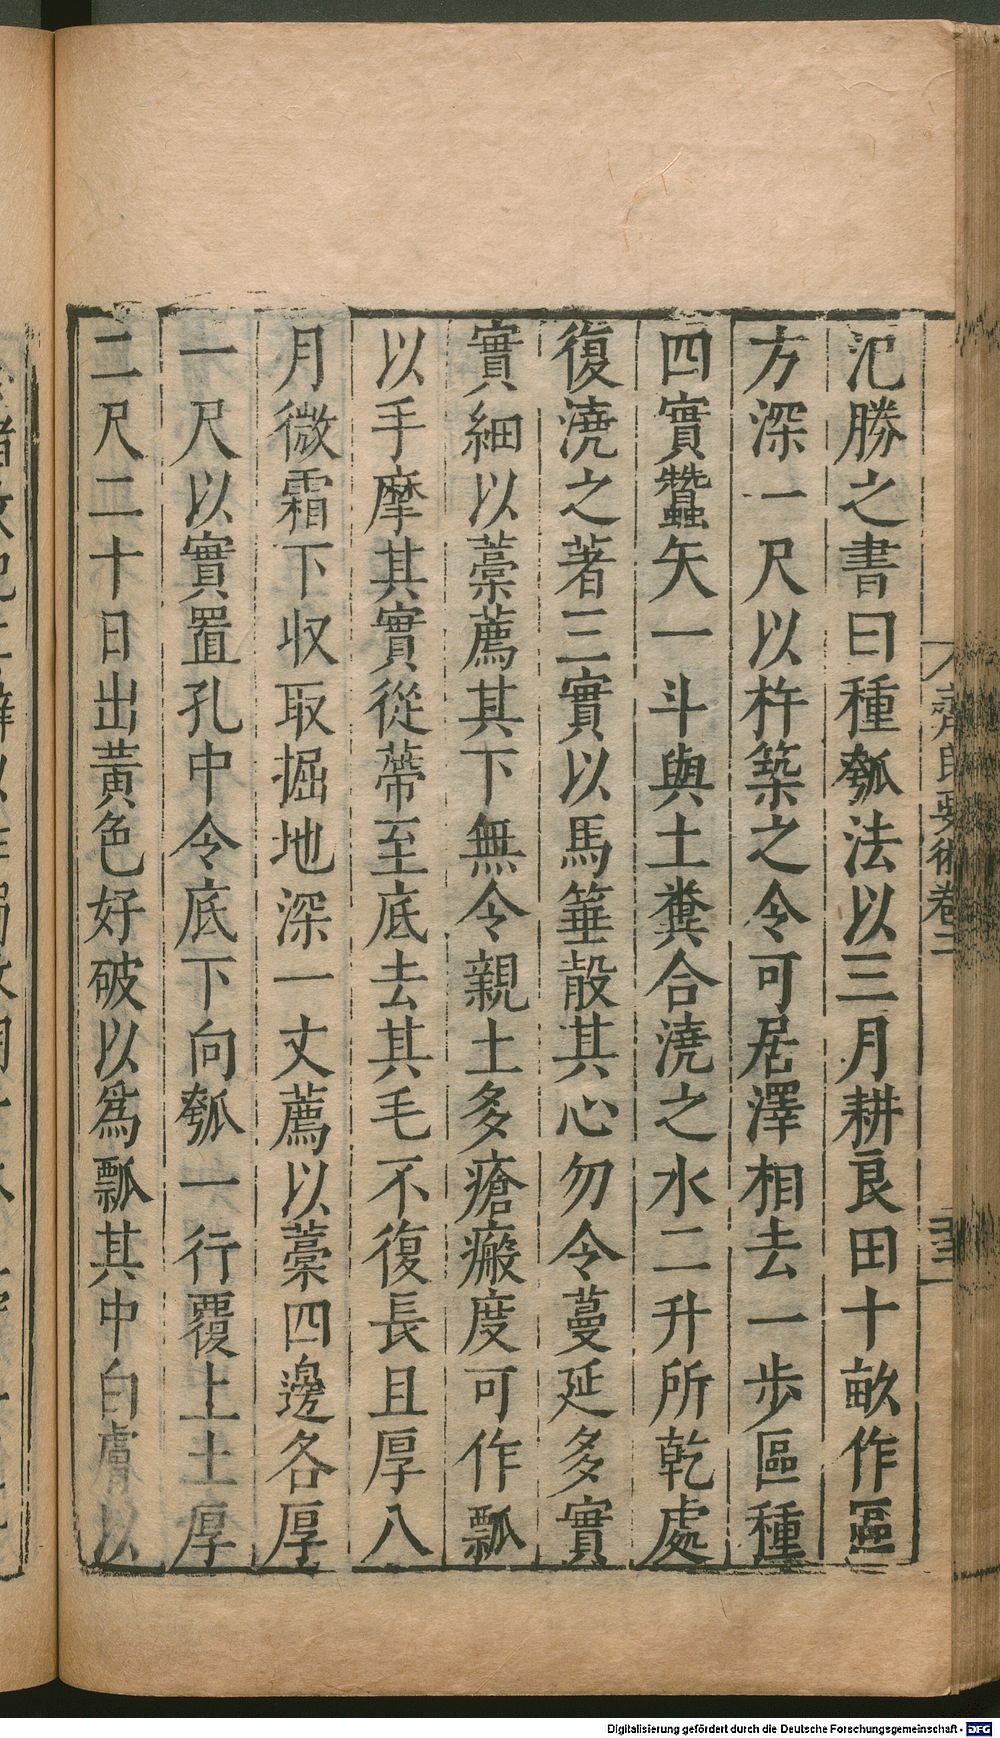 氾勝之書曰種瓠法以三月耕良田十畝作區
方深一尺以杵築之令可居澤相去一步區種
四實蠶矢一斗與土糞合澆之水二升所乾處
復澆之著三實以馬箠殽其心勿令蔓延多實
實細以藁薦其下無令親土多瘡瘢度可作瓢
以手摩其實從蔕至底去其毛不復長且厚八
月微霜下收取掘地深一丈薦以藁四邊各厚
一尺以實置孔中令底下向瓠一行覆上土厚
二尺二十日出黃色好破以爲瓢其中白膚以
齊民要術卷二
Digitalisierung gefördert durch die Deutsche Forschungsgemeinschaft - DFG